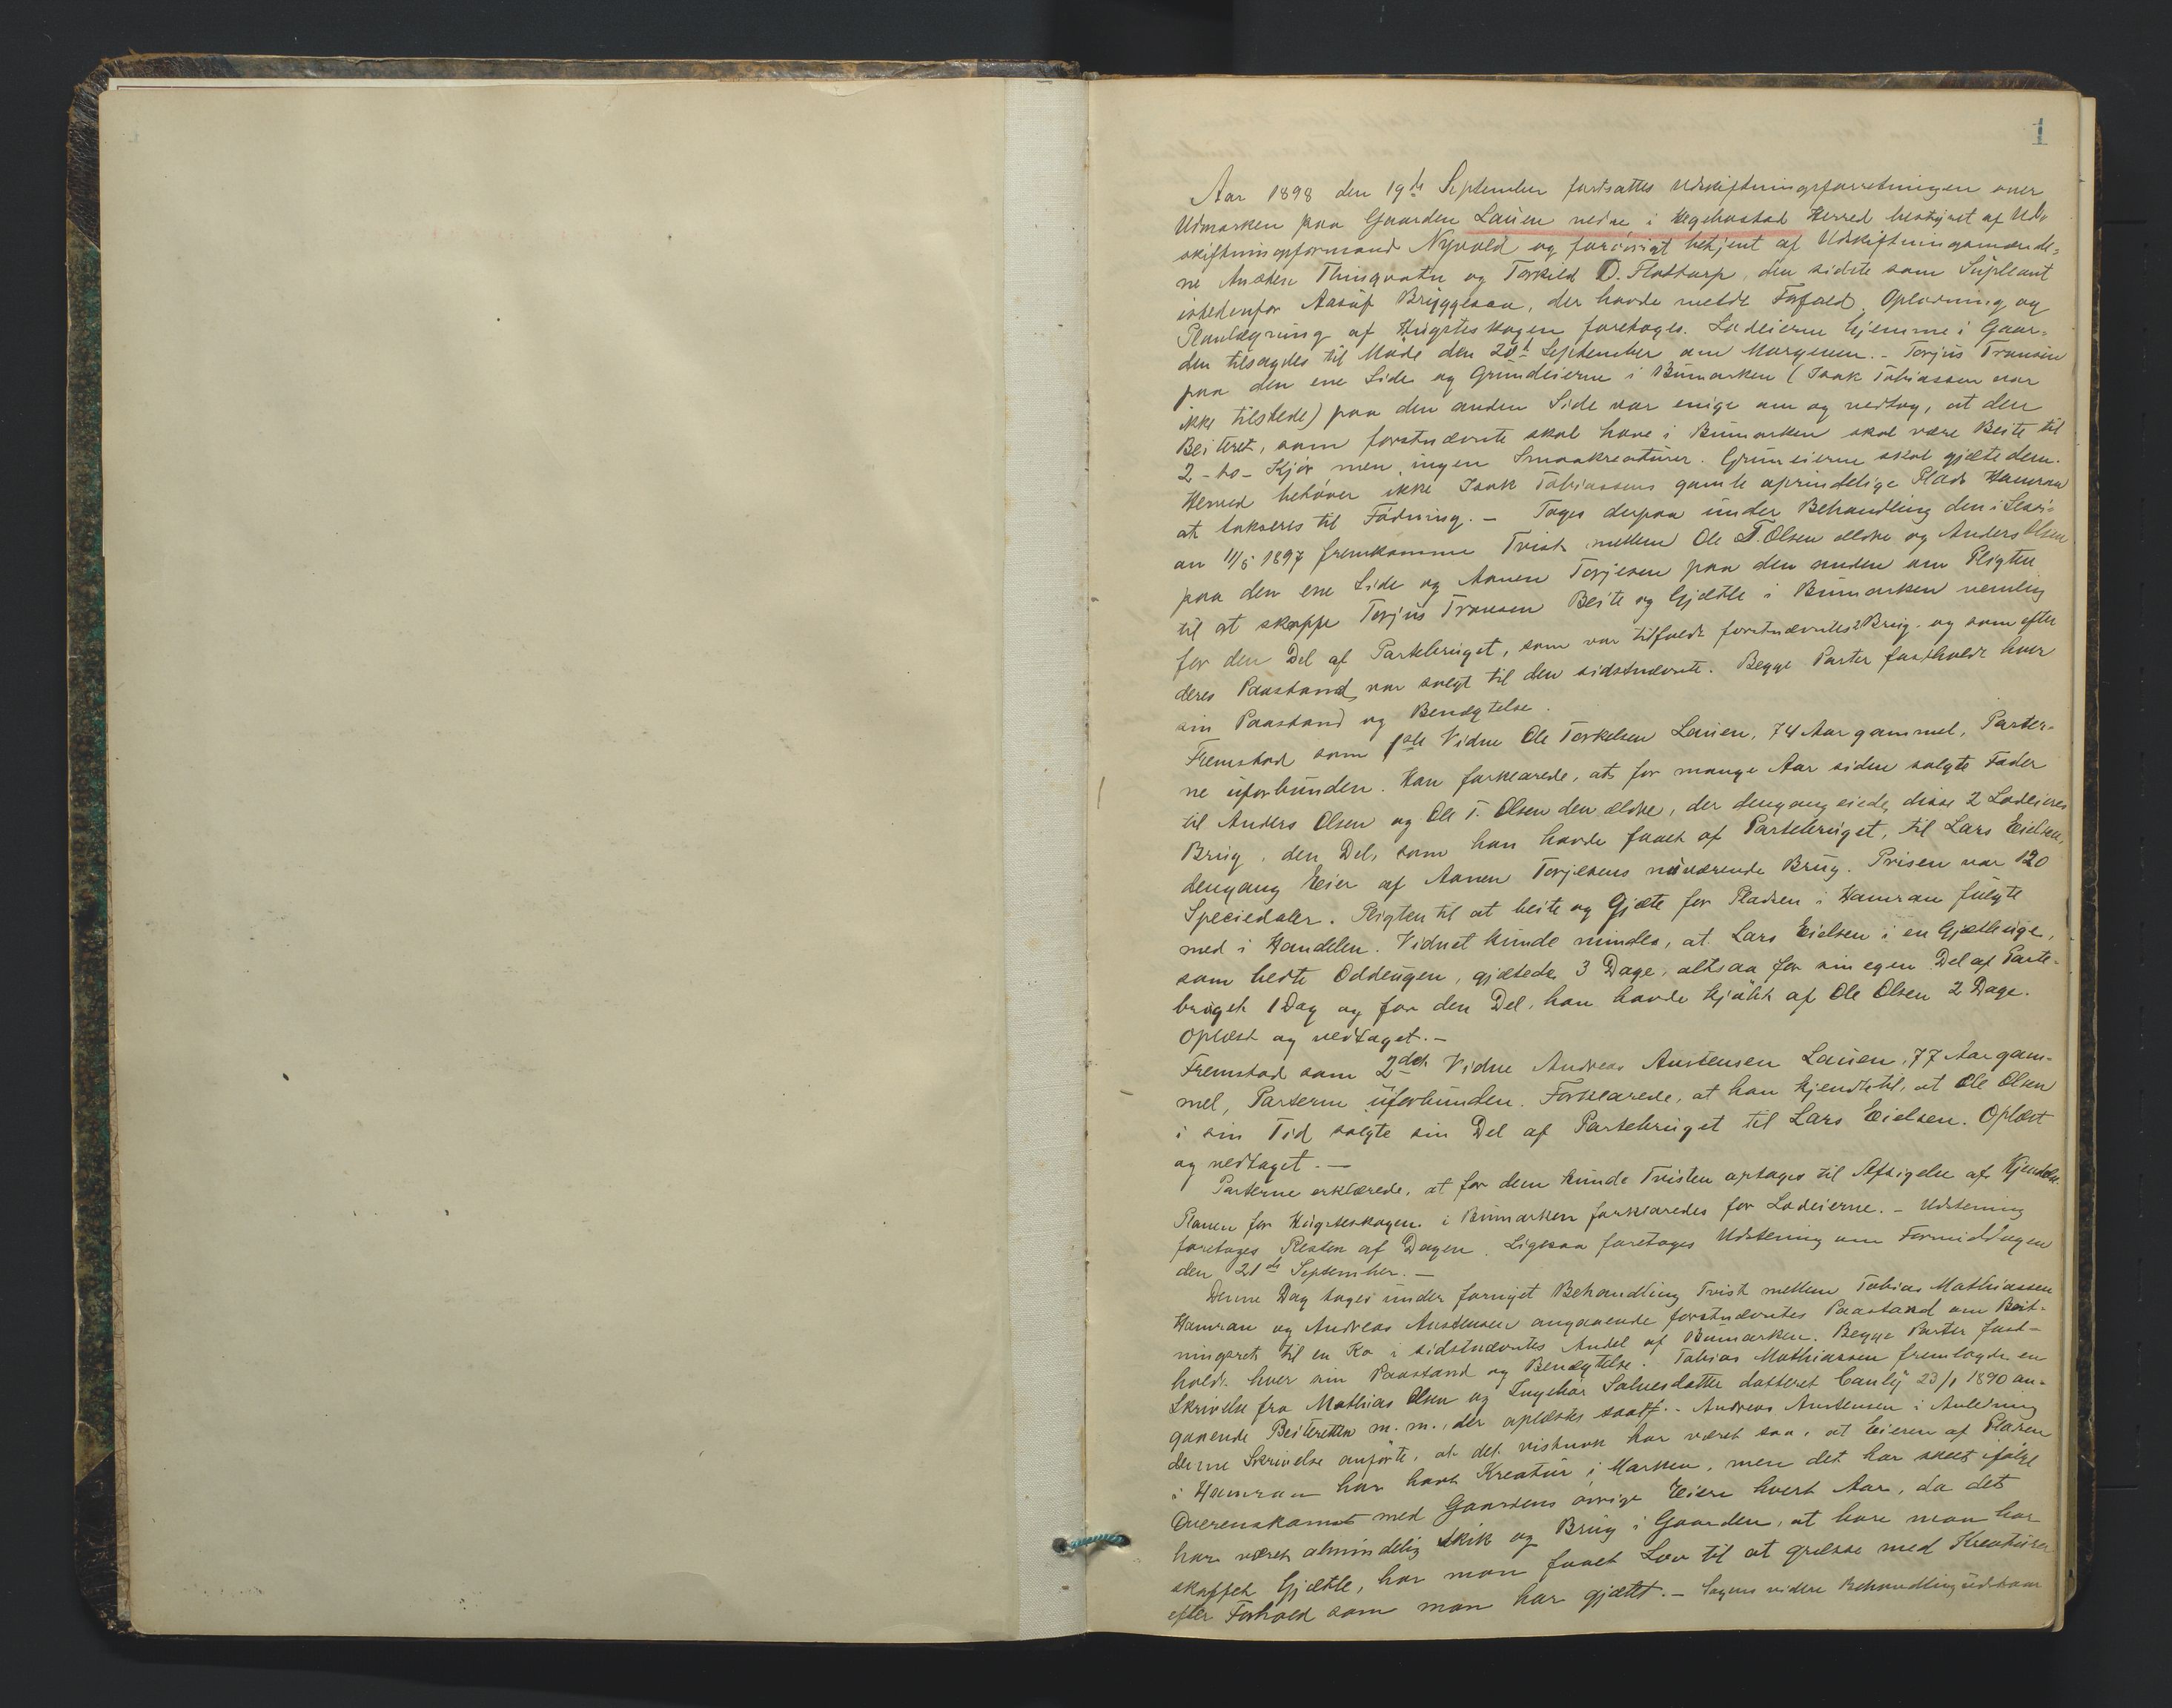 1
Aar 1898 den 19de September fortsattes Udskiftningsforretningen over
Udmarken paa Gaarden Lauen nedre i Hegebostad Herred bestyret af Ud-
skiftningsformand Nyvold og forövrigt betjent af Udskiftningsmænde-
ne Ansten Thinguatn og Torkild D. Flottorp, den sidste som Supleant
istedenfor Aasuf Bryggesaa, der havde meldt Forfald. Oplodning og
Planlægning af Hugstskogen foretoges. Lodeierne hjemme i Gaar-
den tilsagdes til Möde den 20de September om Morgenen. - Torjus Tronsen
paa den ene Side og Grundeierne i Bumarken (Isak Tobiassen var
ikke tilstede) paa den anden Side var enige om og vedtog, at den
Beiteret, som forstnævnte skal have i Bumarken skal være Beite til
2 - to - Kjör men ingen Smaakreaturer. Gruneierne skal gjæte dem.
Hermed behöver ikke Isak Tobiassens gamle oprindelige Plads Hamran
at takseres til Födning. - Toges derpaa under Behandling den i Sesi-
on 11/5 1897 fremkomne Tvist mellem Ole T. Olsen ældre og Anders Olsen
paa den ene Side og Aanen Torjesen paa den anden om Pligten
til at skaffe Torjus Tronsen Beite og Gjætle i Bumarken nemlig
for den Del af Partebruget, som var tilfaldt forstnævntes 2 Brug og som efter
deres Paastand var solgt til den sidstnævnte. Begge Parter fastholdt hver
sin Paastand og Benægtelse.
Fremstod som 1ste Vidne Ole Torkelsen Lauen, 74 Aar gammel, Parter-
ne uforbunden. Han forklarede, at for mange Aar siden solgte Fader
til Anders Olsen og Ole T. Olsen den ældre, der dengang eiede disse 2 Lodeieres
Brug, den Del, som han havde faaet af Partebruget, til Lars Eielsen,
dengang Eier af Aanen Torjesens nuværende Brug. Prisen var 120
Speciedaler. Pligten til at beite og Gjæte for Pladsen i Hamran fulgte
med i Handelen. Vidnet kunde mindes, at Lars Eielsen i en Gjætleuge,
som hedte Oddeugen, gjætede 3 Dage, altsaa for sin egen Del af Parte-
bruget 1 Dag og for den Del, han havde kjöbt af Ole Olsen 2 Dage.
Oplæst og vedtaget. -
Fremstod som 2det Vidne Andreas Austensen Lauen, 77 Aar gam-
mel, Parterne uforbunden. Forklarede, at han kjendte til, at Ole Olsen
i sin Tid solgte sin Del af Partebruget til Lars Eielsen. Oplæst
og vedtaget. -
Parterne erklærede, at for dem kunde Tvisten optages til Afsigelse af Kjendelse.
Planen for Hugstskogen i Bumarken forklaredes for Lodeierne. - Udstening
foretoges Resten af Dagen. Ligesaa foretoges Udstening om Formiddagen
den 21de September. -
Denne Dag toges under fornyet Behandling Tvist mellem Tobias Mathiassen
Hamran og Andreas Austensen angaaende forstnævntes Paastand om Beit-
ningsret til en Ko i sidstnævntes Andel af Bumarken. Begge Parter fast-
holdt hver sin Paastand og Benægtelse. Tobias Mathiassen fremlagde en
Skrivelse fra Mathias Olsen og Ingebor Salvesdatter datteret 23/1 1890 an-
gaaende Beiteretten m. m., der oplæstes saal. - Andreas Austensen i Anledning
denne Skrivelse anförte, at det vistnok har været saa, at Eieren af Pladsen
i Hamran har havt Kreatur i Marken, men det har skeet ifölge
Overenskomst med Gaardens övrige Eiere hvert Aar, da det
har været almindelig Skik og Brug i Gaarden, at bare man har
skaffet Gjætle, har man faaet Lov til at græsse med Kreaturer
efter Forhold som man har gjætet. - Sagens videre Behandling udstaar